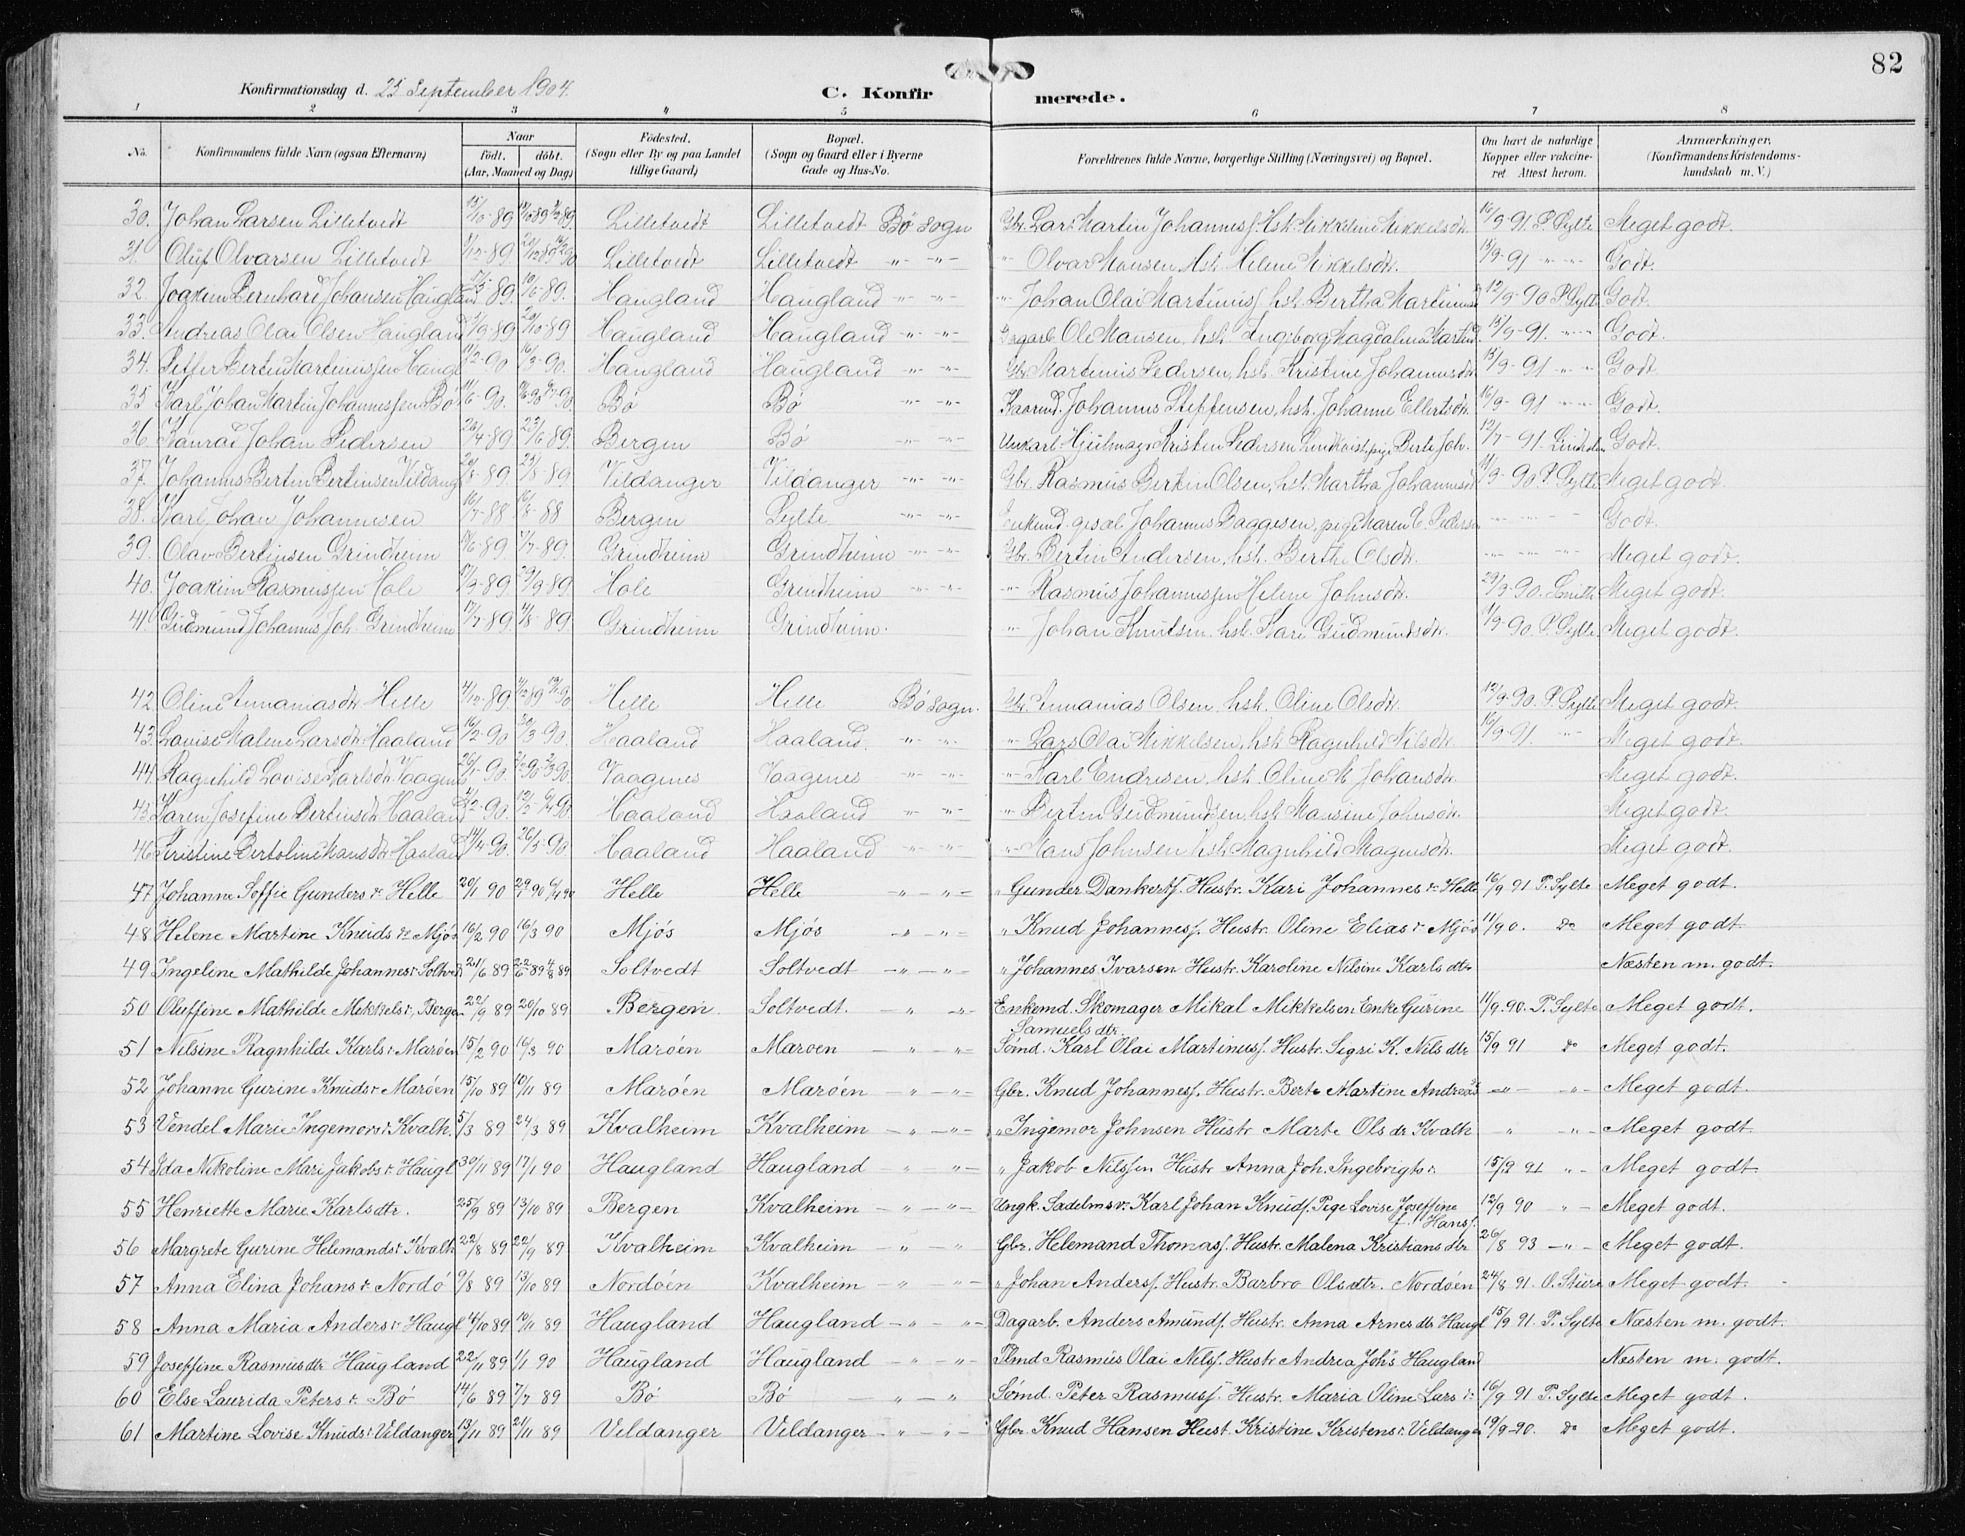 82
Konfirmationsdag d. 25 September 1904.
C. Konfirmerede.
1 2 3 4 5 6 7 8
No. Konfirmandens fulde Navn (ogsaa Efternavn) Naar født. døbt. (Aar, Maaned og Dag) Fødested. (Sogn eller By og paa Landet tillige Gaard) Bopæl. (Sogn og Gaard eller i Byerne Gade og Hus-No. Forældrenes fulde Navne, borgerlige Stilling (Næringsvei) og Bopæl. Om havt de naturlige Kopper eller vakcineret. Attest herom. Anmærkninger. (Konfirmandens Kristendomskundskab m. V.)
30. Johan Larsen Lilletvedt Lilletvedt Lilletvedt Bø sogn Gbr. Lars Martin Johannesf. Hst. Mikkeline Mikkelsdtr. 16/9-91. P. Sylte Meget godt.
31. Oluf Olvarsen Lilletvedt Lilletvedt Lilletvedt -"- -"- -"- Olvar Monsen, Hst. Helene Mikkelsdtr. 15/9-91 -"- -"- Godt.
32. Joakim Bernhard Johansen Haugland Haugland Haugland -"- -"- -"- Johan Olai Martinusf. hst. Bertha Martinusd 12/9-90 P. Sylte Godt.
33. Andreas Olai Olsen Haugland 20/10-89 Haugland Haugland -"- -"- Dagarb. Ole Monsen, hst. Ingeborg Magdalena Martind. 15/9-91. -"- Godt.
34. Petter Bertin Martinussen Haugl 11/2-90 16/3-90. Haugland Haugland -"- -"- Gbr. Martinus Pedersen, hst. Kristine Johannesdtr 15/9-91 -"- Godt.
35 Karl Johan Martin Johannessen Bø 11/6-90. Bø Bø -"- -"- Kaarmd. Johannes Steffensen, hst. Johanne Ellertsdtr. 16/9-91 -"- Godt.
36. Konrad Johan Pedersen 26/4-89 23/6-89. Bergen Bø -"- -"- Unkarl Hjulmager Kristen Pedersen Lindkvist, pige Berte Joh. 12/7-91. Godt.
37. Johannes Bertin Bertinsen Vildang 20/8-89. Vildanger Vildanger -"- -"- Gbr. Rasmus Bertin Olsen, hst. Martha Johannesd 11/9-90 P. Sylte Meget godt.
38. Karl Johan Johannesen 16/7-88 16/8-88 Bergen Sylte -"- -"- Enkemd. gesæl Johannes Baggesen, pige Maren E. Peders -"- -"- -"- Godt.
39. Olav Bertinsen Grindheim 10/6-89 7/7-89. Grindheim Grindheim -"- -"- Gbr. Bertin Andersen, hst. Berthe Olsdtr. -"- -"- -"- Meget godt.
40. Joakim Rasmussen Hole 29/9-89. Hole Grindheim -"- -"- -"- Rasmus Johannessen Helene Johnsdtr. 29/9-90. Smith Meget godt.
41. Gudmund Johannes Joh. Grindheim 17/7-89 4/8-89. Grindheim Grindheim. -"- Johan Knutsen, hst. Kari Gudmundsdtr. 11/9-90. P. Sylte Meget godt.
42 Oline Annaniasdtr Helle 4/12-89. Helle Helle Bø sogn. Gbr. Annanias Olsen, hst. Oline Olsdtr. 12/9-90. P. Sylte Meget godt.
43. Lovise Malene Larsdtr Haaland 16/2-90 30/3-90. Haaland Haaland. -"- -"- -"- Lars Olai Mikkelsen, hst. Ragnhild Nilsdtr. 16/9-91. -"- Meget godt.
44. Ragnhild Lovise Karlsdtr Vaagenes 26/1-90. Vaagenes Vaagenes -"- -"- -"- Karl Endresen, hst. Oline M Johansdtr. Meget godt.
45 Karen Josefine Bertinsdtr Haaland Haaland Haaland -"- -"- -"- Bertin Gudmundsen, hst. Mansine Johnsdtr. Meget godt.
46 Kristine Bertoline Monsdtr Haaland 14/4-90. 26/5-90. Haaland Haaland -"- -"- -"- Mons Johnsen hst. Magnhild Magnesdtr. Meget godt.
47 Johanne Soffie Gunders dr Helle 20/1 90 Helle Helle -"- -"- " Gunder Dankertf. Hustr. Kari Johannes dr Helle 16/9 91 P. Sylte Meget godt.
48 Helene Martine Knuds dr Mjøs 16/2 90 16/3 90 Mjøs Mjøs -"- -"- " Knud Johannesf. Hustr. Oline Elias dr Mjøs 11/90. Do Meget godt.
49 Ingeline Mathilde Johannes dr Soltved 21/6 89 22/6 89 4/8 89 Soltvedt Soltvedt -"- -"- " Johannes Ivarsen Hustr. Karoline Nilsine Karls dtr Næsten m. godt.
50 Oluffine Mathilde Mikkels dr, Bergen 22/9 89 20/10 89 Bergen. Soltvedt. -"- -"- Enkemd. Skomager Mikal Mikkelsen Enke Gurine Samuels dtr. 11/9. 90. P. Sylte Meget godt.
51 Nilsine Ragnhilde Karls dr Marøen 15/2 90 16/3 90 Marøen Maroen -"- -"- Sømd. Karl Olai Martinusf. Hustr. Sigri K. Nils dtr 15/9 91 Do Meget godt.
52 Johanne Gurine Knuds dr Marøen 15/10 89 10/11 89 Marøen Marøen -"- -"- Gbr. Knud Johannesf. Hustr. Berte Martine Andreas -"- "- Meget godt.
53 Vendel Marie Ingemors dr Kvalh. 5/3 89 24/3 89 Kvalheim Kvalheim -"- -"- " Ingemor Johnsen Hustr Marte Ols dr Kvalh " "- Meget godt
54 Ida Nikoline Mari Jakobs dr Haugl 30/11 89 17/1 90 Haugland Haugland " "- " Jakob Nilssen Hustr Anna Joh. Ingebrigts dr 15/9 91 "- Meget godt
55 Henriette Marie Karlsdtr. 25/9 89 13/10 89 Bergen Kvalheim -"- -"- Ungk. Sadelmsv. Karl Johan Knudf. Pige Lovise Joseffine f. Hansf. 12/9 90 "- Meget godt.
56 Margrete Gurine Helemands dr Kvalh 22/8 89 22/9 89 Kvalheim Kvalheim -"- " Gbr. Helemand Thomasf. Hustr. Malena Kristians dtr 26/8 93 -"- Meget godt.
57 Anna Elina Johans dr Nordø 9/8 89 13/10 89 Nordøen Kvalheim -"- "- " Johan Andersf. Hustr. Barbro Olsdtr. Nordøen 24/8 91. O. Sture Meget godt.
58 Anna Maria Anders dr Haugl 14/10 89 10/11 89 Haugland Haugland -"- "- Dagarb. Anders Amundf. Hustr. Anna Arnes dtr Haugl 15/9 91. P. Sylte Næsten m. godt.
59 Joseffine Rasmusdtr Haugland 22/11 89 1/1 90 Haugland Haugland " "- Rasmus Olai Nilsf. Hustr Andrea Joh's Haugland Næsten m. godt.
60 Else Laurida Peters dr Bø 14/6 89 7/7 89 Bø Bø "- " Sømd. Peter Rasmusf. Hustr. Maria Oline Lars dr 16/9 91 P. Sylte Meget godt.
61 Martine Lovise Knuds dr Vildanger 13/11 89 21/11 89 Vildanger Vildanger -"- "- Gbr. Knud Hansen Hust. Kristine Kristens dr. Vildanger 19/9-90. Do Meget godt.